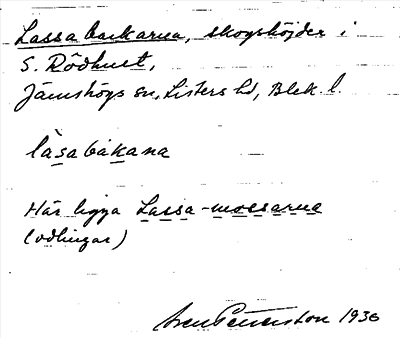 Lassabackarna, skogshöjder i
S. Rödhult,
Jämshögs sn, Listers hd, Blek. l.
làsabákana
Här ligga Lassa-mossarna
(odlingar)
Sven Petersson 1936